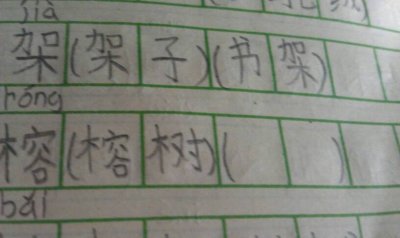 jià
架(架子)(书架)
róng
榕(榕树)(    )
bǎi